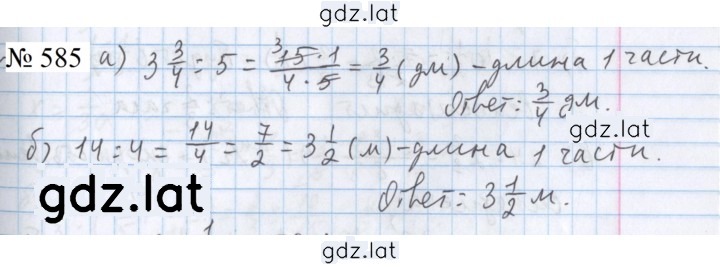 gdz.lat
№ 585 а) 3 3/4 : 5 = 15·1/4·5 = 3/4 (дм) - длина 1 части.
3
Ответ: 3/4 дм.
gdz.lat
б) 14 : 4 = 14/4 = 7/2 = 3 1/2 (м) - длина 1 части.
gdz.lat
Ответ: 3 1/2 м.
gdz.lat